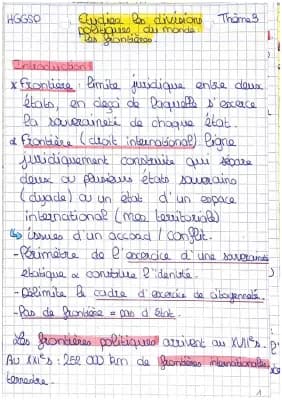 HGGSP Etudier les divisions Thème 3
politiques du monde
Les frontières
Introduction
x Frontière : limite juridique entre deux
états, en deçà de laquelle s'exerce
la souveraineté de chaque état.
x Frontière (droit international) ligne
juridiquement construite qui sépare
deux ou plusieurs états souverains
(dyade) ou un état d'un espace
international (mer territoriale)
↳ issues d'un accord / conflit.
- Périmètre de l'exercice d'une souveraineté
étatique & construire l'identité.
- Délimite le cadre d'exercice de citoyenneté.
- Pas de frontière = pas d'état.
Les frontières politiques arrivent au XVIIe s.
Au XXIe s : 252 000 km de frontières internationales
terrestre.
1